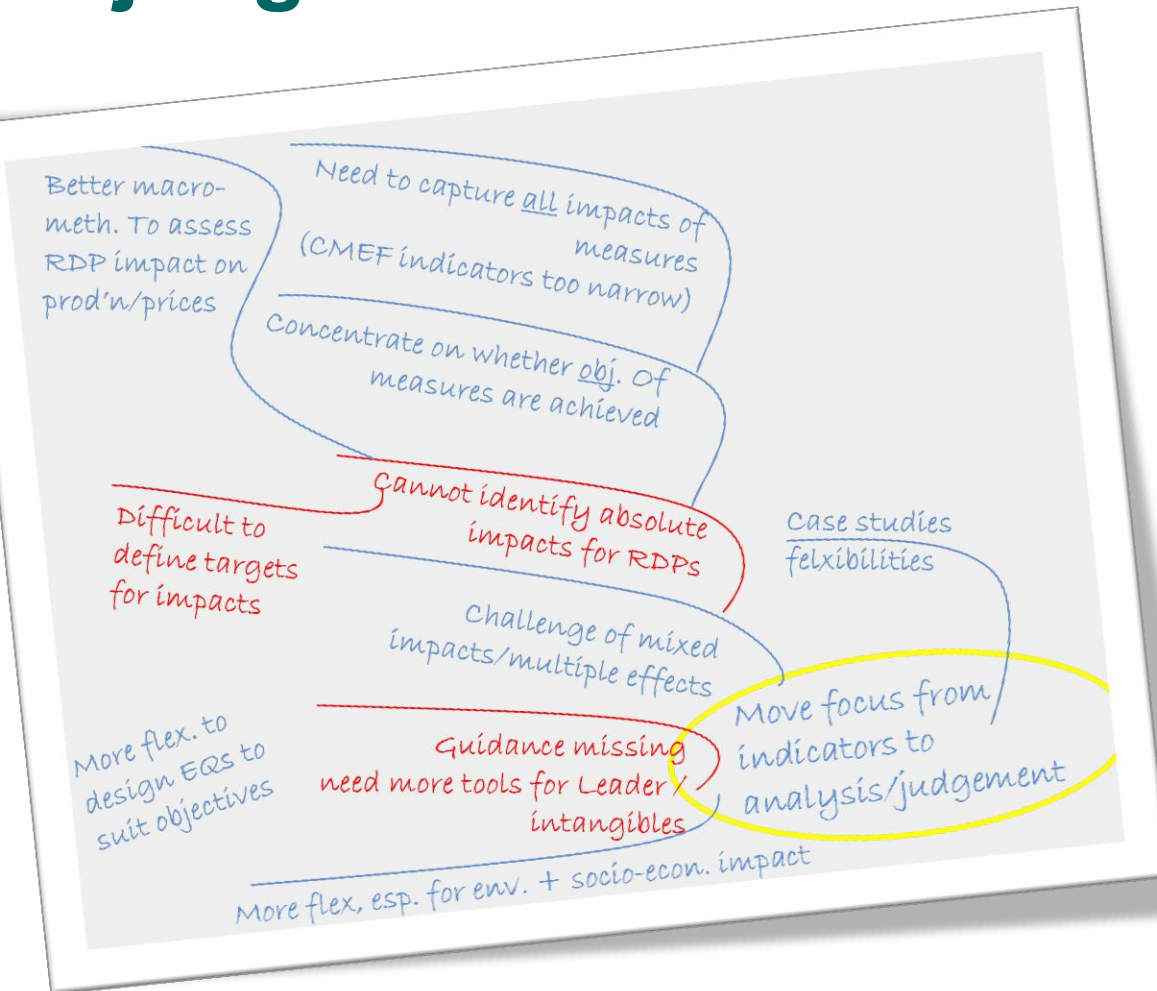 Better macro-
meth. To assess
RDP impact on
prod'n/prices
Need to capture all impacts of
measures
(CMEF indicators too narrow)
Concentrate on whether obj. Of
measures are achieved
Cannot identify absolute
impacts for RDPs
Difficult to
define targets
for impacts
Case studies
felxibilities
Challenge of mixed
impacts/multiple effects
Move focus from
indicators to
analysis/judgement
More flex. to
design EQs to
suit objectives
Guidance missing
need more tools for Leader /
intangibles
More flex, esp. for env. + socio-econ. impact